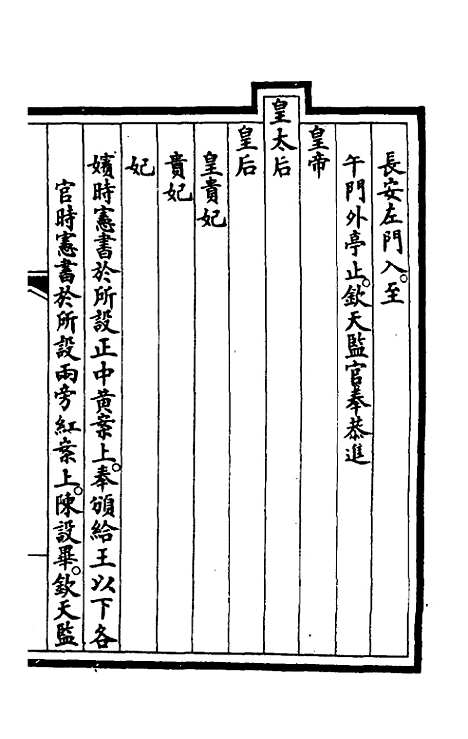 長安左門入。至
午門外亭止。欽天監官奉恭進
皇帝
皇太后
皇后
皇貴妃
貴妃
妃
嬪時憲書於所設正中黃案上。奉頒給王以下各
官時憲書於所設兩旁紅案上。陳設畢。欽天監